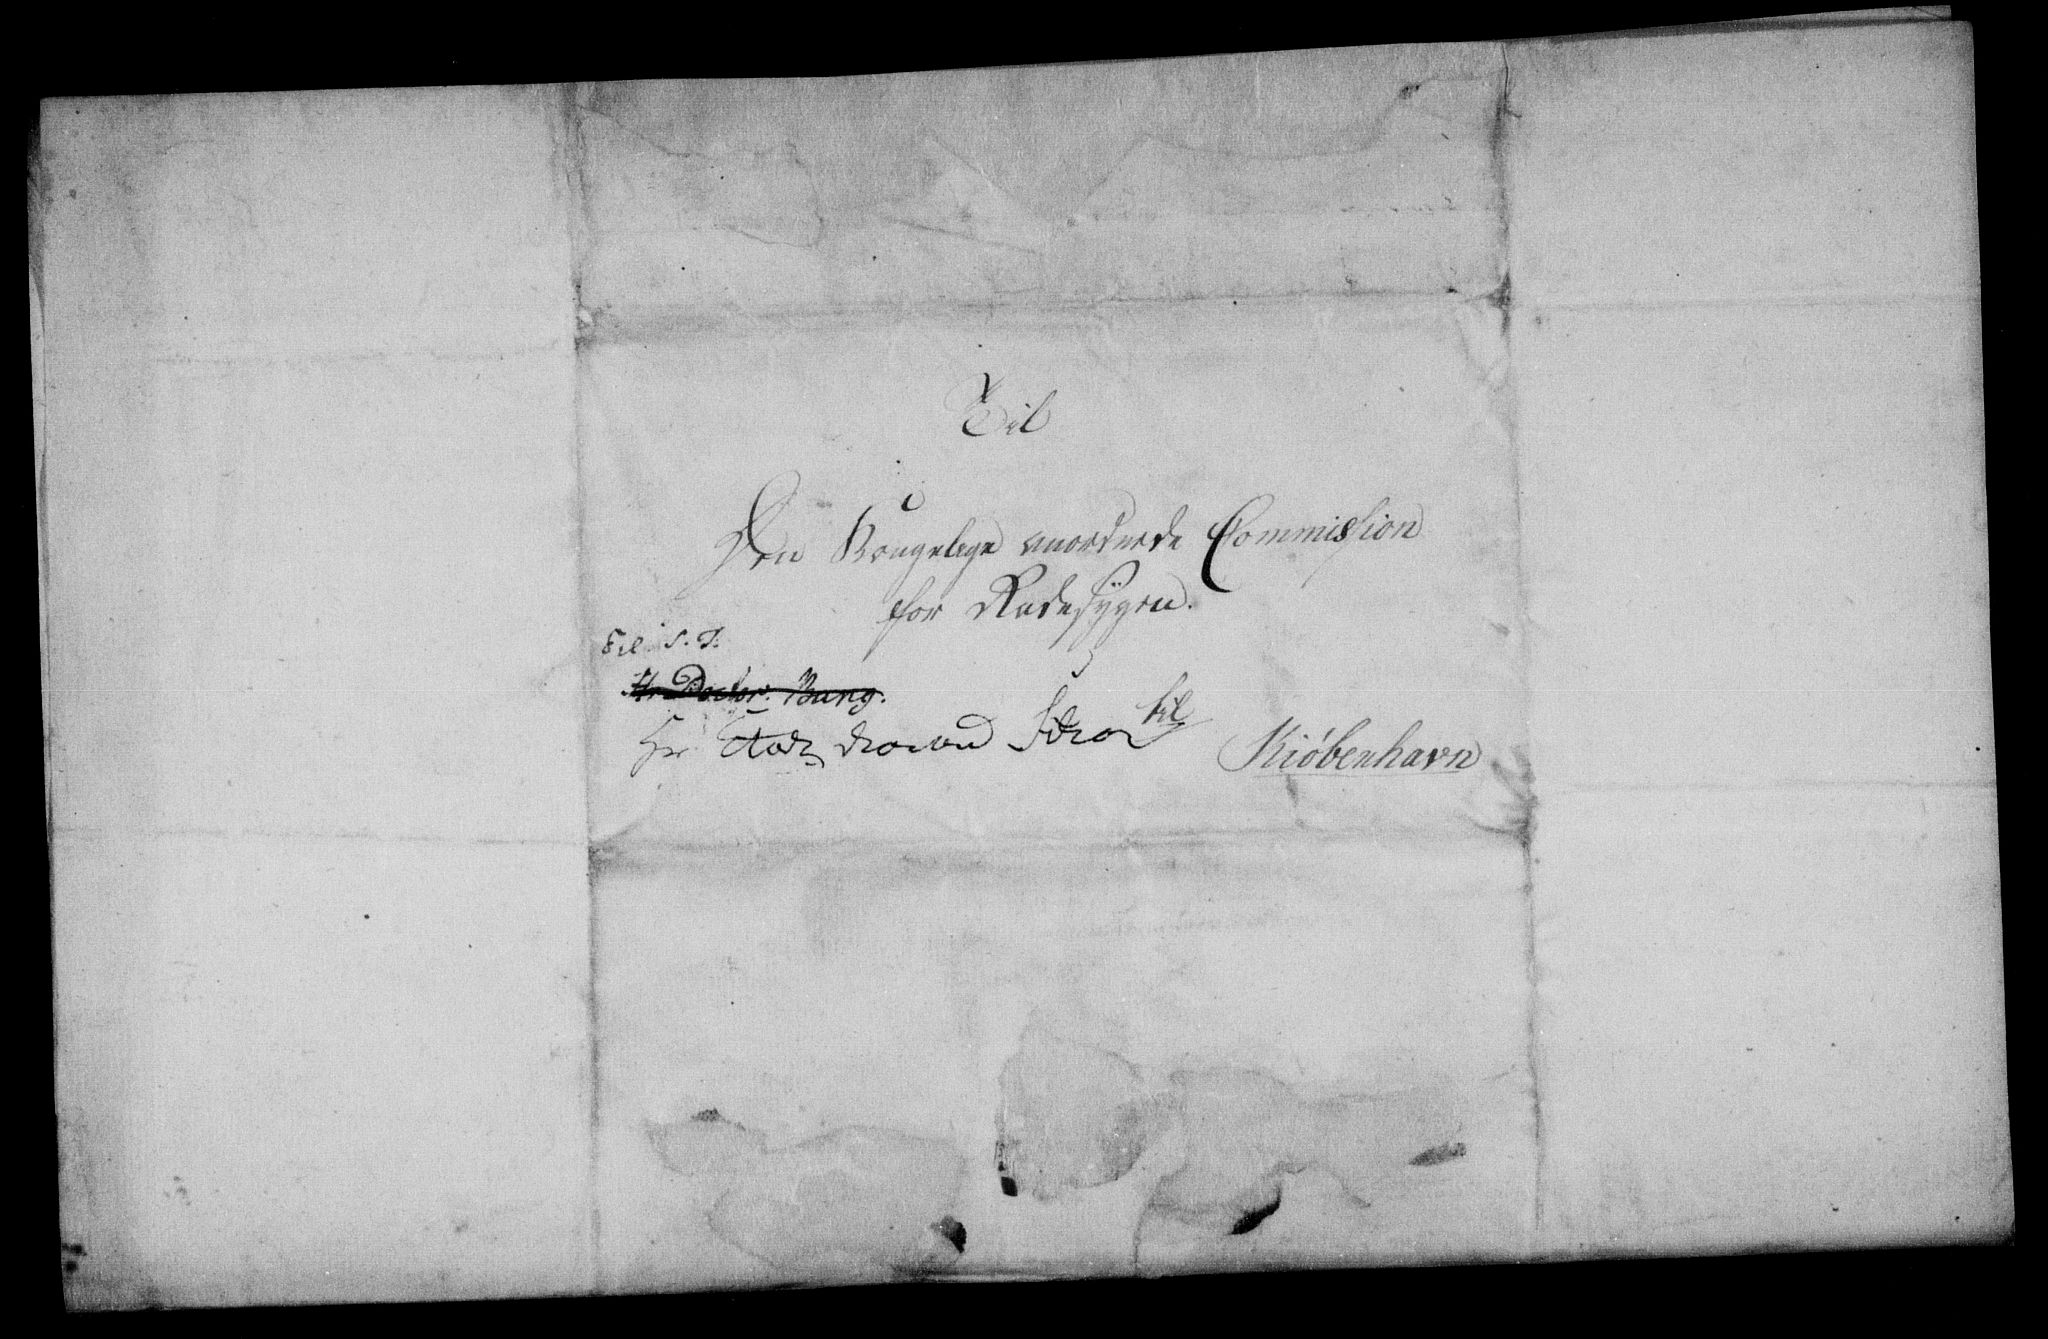 Til
Den Kongelige anordnede Commission
for Radesygen.
Til S. T.
Hr Doctor Bang.
Hr Etatz
til
Kiöbenhavn